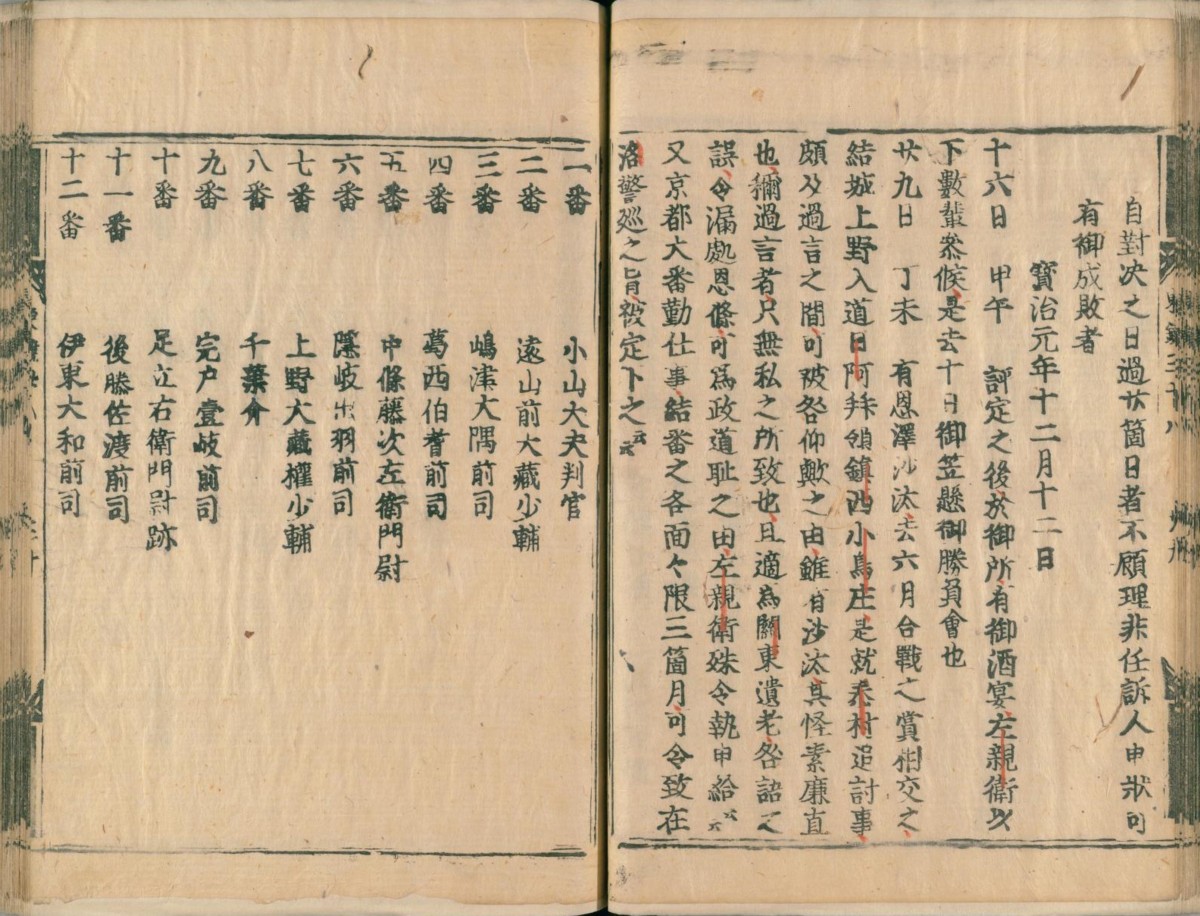 自對决之日過廿箇日者不顧理非任訴人申狀可
有御成敗者
寳治元年十二月十二日
十六日　甲午　評定之後於御所有御酒宴左親衛以
下數輩叅候是去十日御笠懸御勝負會也
廿九日　丁未　有恩澤沙汰去六月合戰之賞相交之
結城上野入道日阿拜領鎮西小鳥庄是就泰村追討事
頗及過言之間可被咎仰歟之由雖有沙汰其怪素廉直
也稱過言者只無私之所致也且適為關東遺老各詔之
誤令漏處恩條可為政道耻之由左親衛殊令執申給云云
又京都大番勤仕事結番之各面々限三箇月可令致在
洛警巡之旨被定下之云云
一番　小山大夫判官
二番　遠山前大藏少輔
三番　嶋津大隅前司
四番　葛西伯耆前司
五番　中條藤次左衛門尉
六番　隱岐出羽前司
七番　上野大藏權少輔
八番　千葉介
九番　完户壹岐前司
十番　足立右衛門尉跡
十一番　後藤佐渡前司
十二番　伊東大和前司